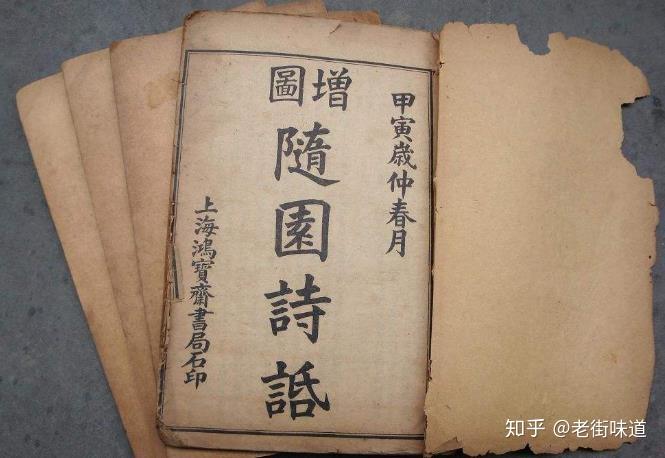 甲寅歲仲春月
增圖
隨園詩䛡
上海鴻寶齋書局石印
知乎 @老街味道